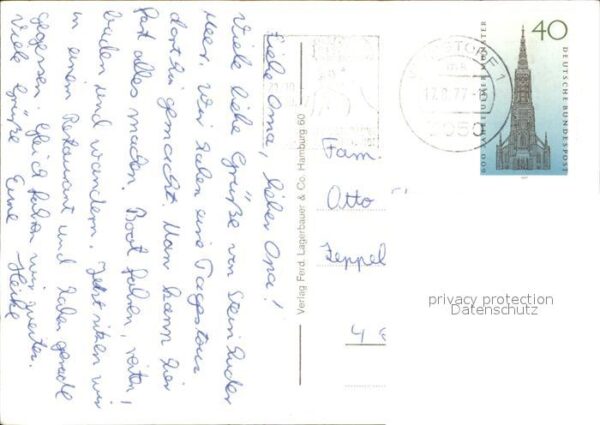 Liebe Oma, lieber Opa!
Viele liebe Grüße vom Steinhuder
Meer. Wir haben eine Tagestour
dorthin gemacht. Man kann hier
fast alles machen. Boot fahren, reiten,
baden und wandern. Jetzt sitzen wir
in einem Restaurant und haben gerade
gegessen. Gleich fahren wir weiter.
Viele Grüße Eure Heike
Verlag Ferd. Lagerbauer & Co. Hamburg 60
Fam.
Otto
Zeppel
4
WUNSTORF 1
17.8.77
3050
40
600 JAHRE ULMER MÜNSTER
DEUTSCHE BUNDESPOST
privacy protection
Datenschutz